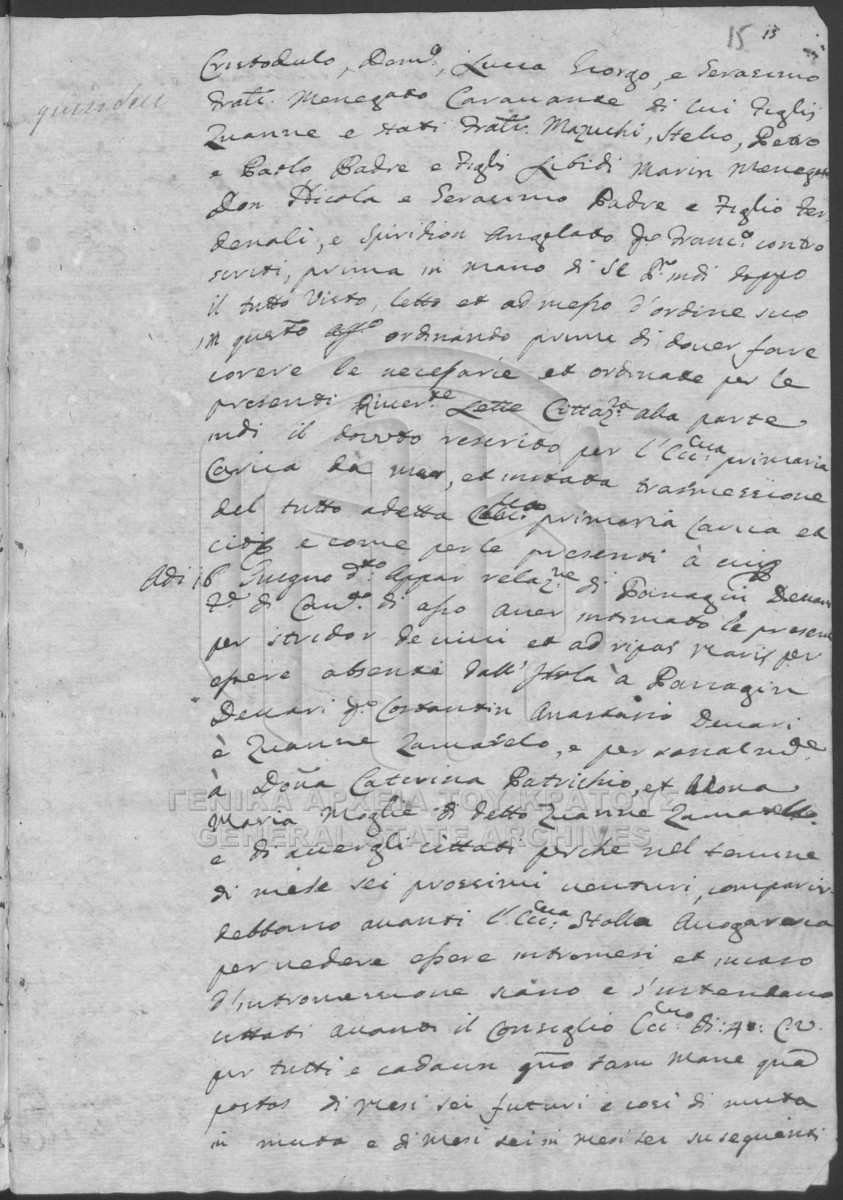 15 15
quindeci
Cristodulo, Dom:º, Lucca Giorgo, e Gerasimo
Fratt: Menegato Caravante di lui Figli
Zuanne e Stati Fratt: Mazuchi, Stelio, Petro
e Paolo Padre e Figli Libidi Marin Menegato
Don Nicola e Gerasimo Padre e Figlio
denali, e Spiridion Angelato Franc:º contro
scritti, prima in mano di S.E. indi doppo
il tutto Visto, letto et admesso d'ordine suo
in questo off:º ordinando prima di dover fare
corere le necessarie et ordinate per le
presenti River:te Lette alla parte
indi il dovuto rescrito per l'Ecc:ma primaria
Carica da mar, et instata trasmessione
del tutto a detta Ecc:ma primaria Carica et
e come per le presenti à
Adi 16 Giugno d:to Appar relaz:ne di Panagin Devari
di Cand:º di esso aver intimato le presenti
per stridor et ad ripas Maris per
essere absente dall'Isola à Panagin
Devari Costantin Anastasio Devari
è Zuanne Zamarelo, e personalm:te
à Dona Caterina Patrichio, et Dona
Maria Moglie di detto Zuanne Zamarello
e di avergli cittati perche nel termine
di mese sei prossimi venturi, comparir
debbano avanti l'Ecc:ma Avogaresca
per vedere essere intromesi et in caso
d'intromessione siano e s'intendano
cittati avanti il Consiglio Ecc:mo di: 40: C.V.
per tutti e cadaun tam Mane
di Mesi sei futuri e cosi di muta
in muta e di Mesi sei in Mesi sei susequenti
ΓΕΝΙΚΑ ΑΡΧΕΙΑ ΤΟΥ ΚΡΑΤΟΥΣ
GENERAL STATE ARCHIVES